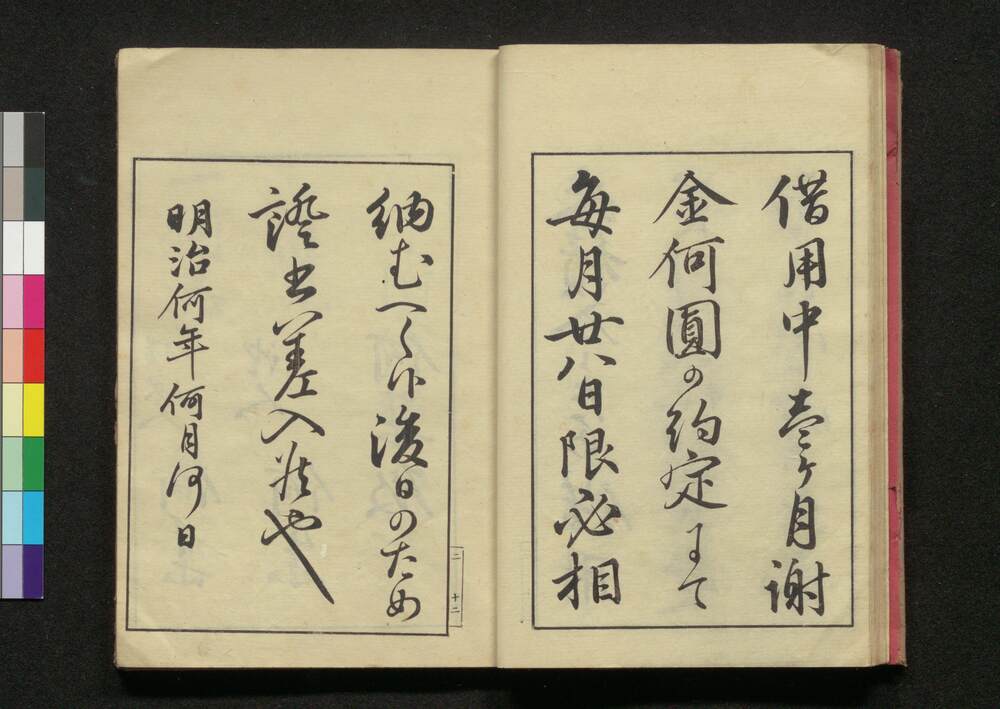 借用中壹ヶ月謝
金何圓の約定にて
毎月廿八日限必相
納むへく候後日のため
證書差入候也
明治何年何月何日
二
十二